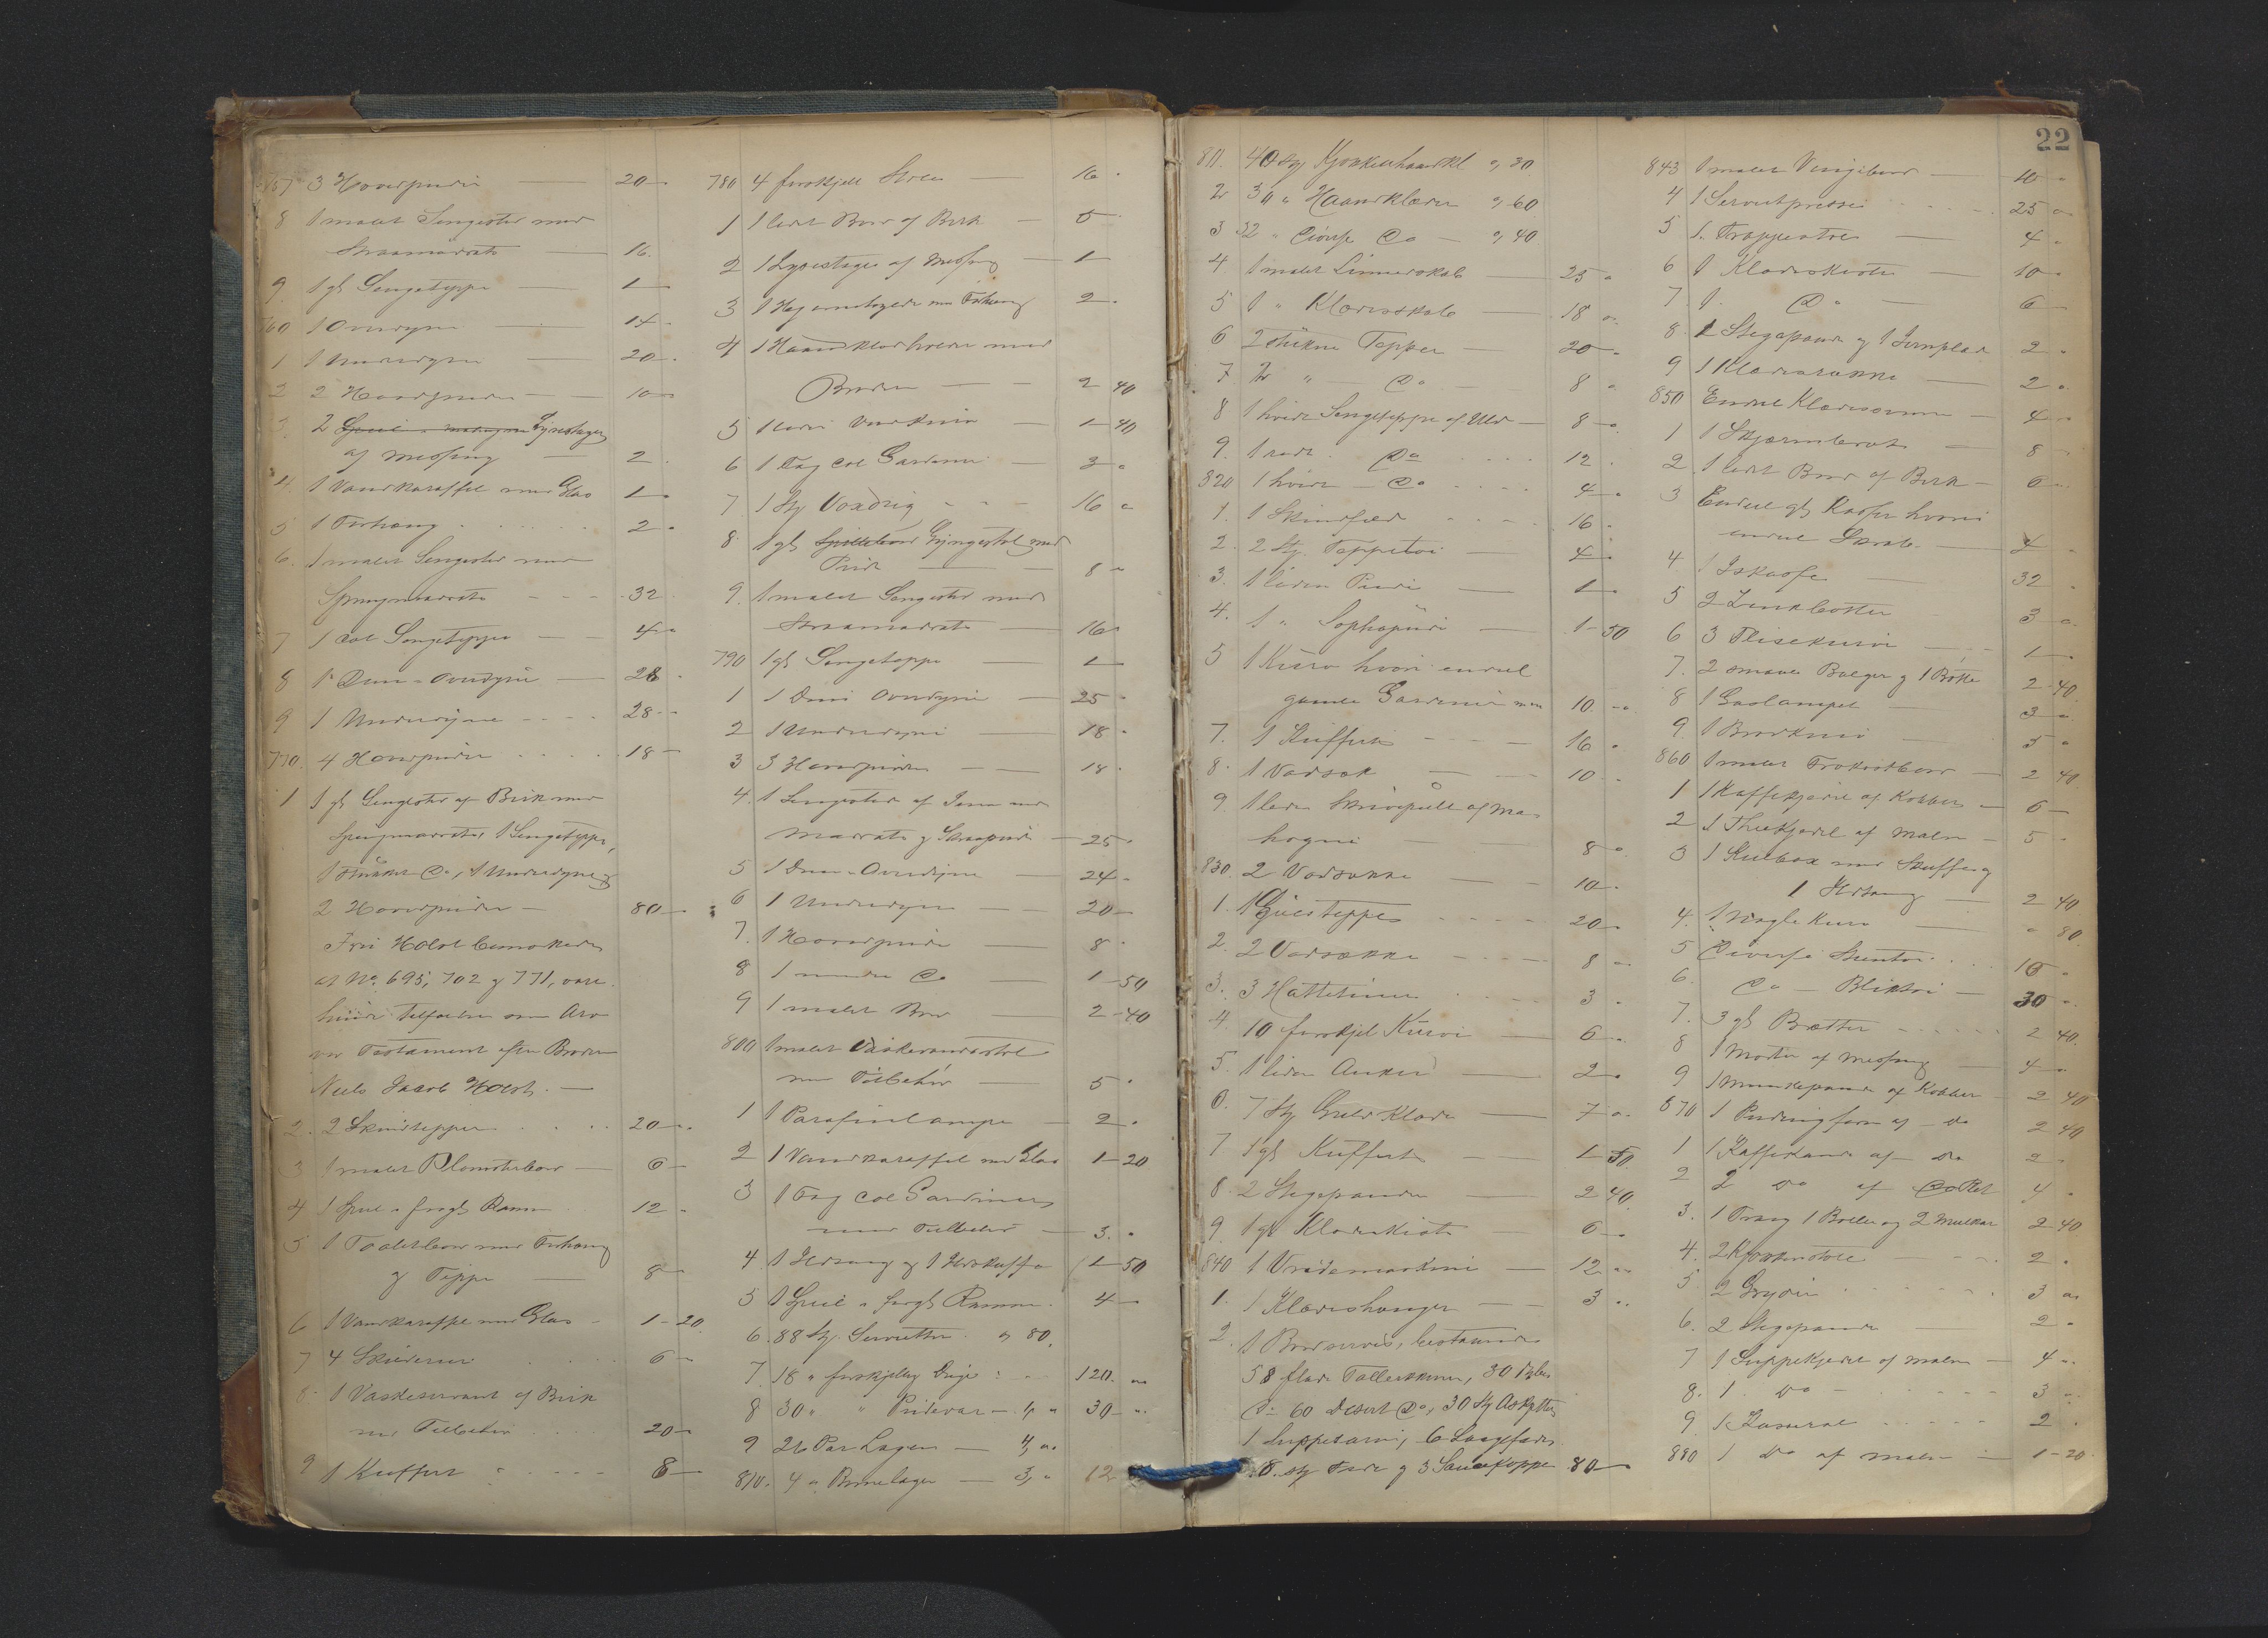 757 3 Hovedpuder — 20 "
8 1 malet Sengested med
Straamadrats — 16.
9. 1 gl Sengeteppe — 1 —
760 1 Overdyne — 14 -
1 1 Underdyne — 20 -
2 2 Hovedpuder — 10 —
3. 2 Lysestager
af Messing — 2.
4. 1 Vandkaraffel med Glas 1 —
5 1 Forhæng 2 "
6. 1 malet Sengested med
Springmadrats - - - 32.
7 1 col Sengeteppe — 4 "
8 1 Dun-Overdyne — 28 -
9 1 Underdyne - - - - 28 - -
770. 4 Hovedpuder 18 —
1 1 gl Sengested af Birk med
Springmadrats, 1 Sengeteppe,
1 stukket Do, 1 Underdyne og
2 Hovedpuder — 80 —
Fru Holst bemærkede
at No. 695, 702 og 771, vare
hende tilfaldne som Arv
ved Testament efter Broderen
Niels Jacob Holst. —
2. 2 Skindtepper 20 - "
3 1 malet Blomsterbord — 6 —
4 1 Speil i forgt Ramme 12 -
5 1 Toiletbord med Forhæng
og Teppe — 8 —
6 1 Vandkaraffel med Glas - 1 - 20
7 4 Skilderier 6 —
8 1 Vaskeservant af Birk
med Tilbehør 20 —
9 1 Kuffert - - - - 8 —
780 4 forskjell Stole — 16 "
1 1 lidet Bord af Birk — 5 -
2 1 Lysestage af Messing — 1 —
3 1 Hjørnehylde med Forhæng 2 -
4 1 Haandklædholder med
Broderi — 2 40
5 1 liden Vadskurv — 1 - 40
6 1 Fag col Gardiner — 3 "
7 1 Stk Voxdug - - - 16 "
8 1 gl Gyngestol med
Pude — 8 "
9. 1 malet Sengested med
Straamadrats — 16 "
790 1 gl Sengeteppe — 1 —
1 1 Dun Overdyne — 25 "
2 1 Underdyne — 18 "
3 3 Hovedpuder — 18 "
4. 1 Sengested af Jern med
Madrats og Straapude — 25 "
5 1 Dun-Overdyne — 24 "
6 1 Underdyne — 20 —
7. 1 Hovedpude — 8 "
8 1 mindre Do — 1 - 50
9 1 malet Bord — 2 - 40
800 1 malet Vaskevandsstol
med Tilbehør — 5 "
1 1 Parafinlampe — 2 "
2 1 Vandkaraffel med Glas 1 - 20
3 1 Fag col Gardiner
med Tilbehør — 3. "
4 1 Ildtang og 1 Ildskuffe 1 - 50
5 1 Speil i forgt Ramme. 4 —
6. 88 Stk. Servietter. a 80.
7. 18 " forskjellig Duge 120. "
8 30 " " Pudevar — 1, " 30 - "
9 26 Par Lagen — 4, "
810. 4 " Børnelagen — 3, " 12
22
811. 40 Stk Kjøkkenhaandkl a 30
2 30 " Haandklæder a 60
3 32 " diverse Do — a 40
4. 1 malet Linnedskab 25 "
5 1 " Klædesskab — 18 "
6 2 stukne Tepper — 20 "
7. 2 " Do — 8 "
8 1 hvidt Sengeteppe af Uld — 8 - "
9. 1 rødt Do 12 .
820 1 hvidt — Do 4 "
1. 1 Skindfæld 16 "
2. 2 Stk. Teppetøi — 4 "
3. 1 liden Pude — 1 —
4. 1 " Sophapude — 1 - 50
5 1 Kurv hvori endeel
gamle Gardiner 10. - "
7. 1 Kuffert - - - 16 "
8. 1 Vadsæk — 10 - "
9. 1 liden Skrivepult af Ma-
hogni — 8 "
830. 2 Vadsække — 10 -
1. 1 20 "
2. 2 Vadsække - - - 8 "
3. 3 Hatteæsker 3 "
4 10 forskjel Kurve — 6 "
5. 1 liden Anker — 2 "
6. 7 Stk Gulvklæde — 7 "
7 1 gl Kuffert — 1 - 50
8. 2 Stegepander — 2 40.
9. 1 gl Klædeskiste — 6 —
840 1 Vridemaskine — 12 "
1. 1 Klædeshænger — 3 "
2. 1 Bordservice, bestaaende
58 flade Tallerkener, 30 dybe
Do 60 Desert Do, 30 Stk Asjetter
1 Suppeterrin, 6 Langfade
8 Stk Fade og 3 Sausekopper 80 —
843 1 malet 10 "
4 1 Servietpresse 25 "
5 1. Trappestol — 4 "
6 1 Klædeskiste — 10 "
7. 1. Do — 6 —
8. 2 Stegepander og 1 Jernplade 2 "
9 1 2 "
850 Endeel Klædesnorer — 4 "
1 1 Skjærmbræt — 8 "
2 1 lidet Bord af Birk — 6 "
3 Endeel gl Kasser hvori
endeel Skrab — 4 "
4. 1 Iskasse — 32 "
5 2 Zinkbøtter 3 "
6 3 Flisekurve — 1 —
7. 2 smaae Balger og 1 Bøtte 2 - 40.
8 1 Gaslampe — 3 "
9. 1 Brødkurv — 5 "
860 1 malet Frokostbord — 2 40.
1 1 Kaffekjedel af Kobber — 6 —
2 1 Theekjedel af Malm — 5 "
3 1 Kulbox med Skuffe og
1 Ildtang — 2 40
4. 1 Nøglekurv — " 80.
5 Diverse Stentøi 10 "
6. Do — Bliktøi — 30 "
7. 3 gl Brætter 2 40.
8 1 Morter af Messing — 4 "
9 1 Munkepande af Kobber — 2 40
870 1 Pudingform af — do 2 40
1 1 Kaffekande af — do 2 "
2 2 do af 4 "
3. 1 Traug 1 Bolle og 2 2 40
4. 2 Kjøkkenstole 2 "
5. 2 Gryder 3 "
6. 2 Stegepander — 2 "
7 1 Suppekjedel af Malm — 4 "
8. 1. do — 3 "
9. 1 Kaserol 2 "
880 1 do af Malm — 1 - 20